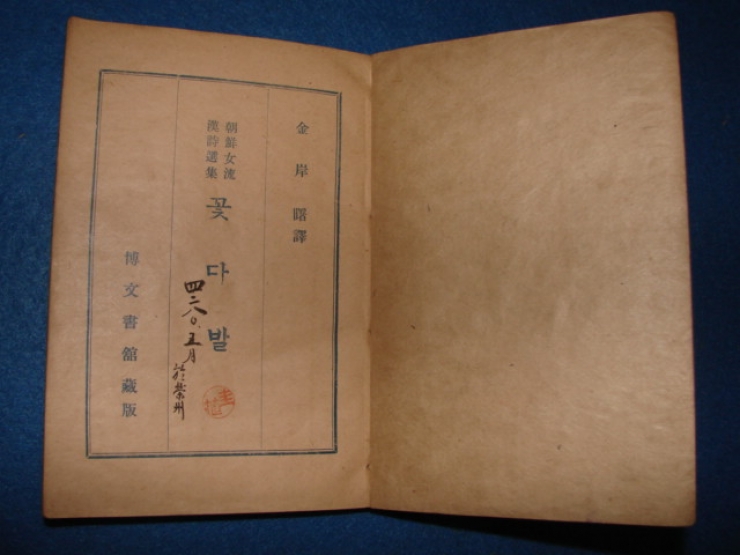 金岸曙譯
朝鮮女流
漢詩選集
꽃다발
四二八〇.五月
於榮州
博文書舘藏版